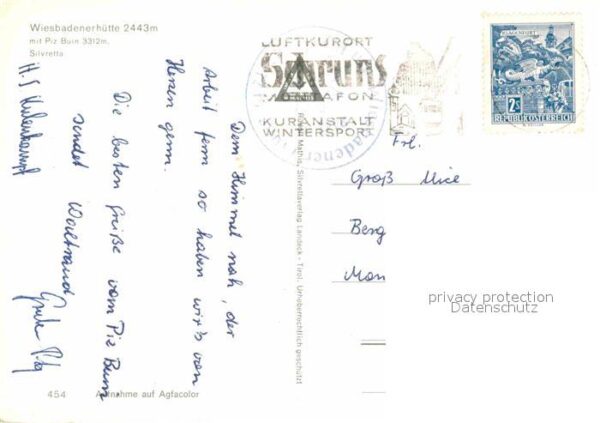 Wiesbadenerhütte 2443m
mit Piz Buin 3312m.
Silvretta
Dem Himmel nah, der
Arbeit fern so haben wir's von
Herzen gern.
Die besten Grüße vom Piz Buin
sendet Waltraud
454
Aufnahme auf Agfacolor
Mathis, Silvrettaverlag Landeck - Tirol. Urheberrechtlich geschützt
LUFTKURORT
Schruns
MONTAFON
KURANSTALT
WINTERSPORT
KLAGENFURT
2S
REPUBLIK ÖSTERREICH
Frl.
Groß
Berg
privacy protection
Datenschutz